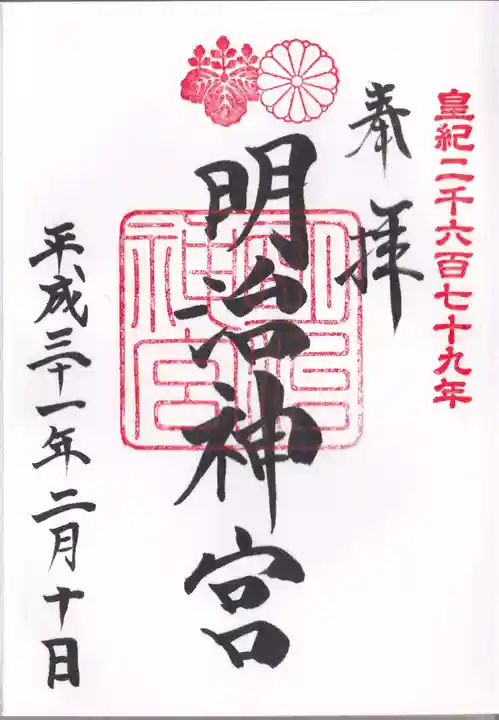 皇紀二千六百七十九年
奉拝
明治神宮
明治神宮
平成三十一年二月十日